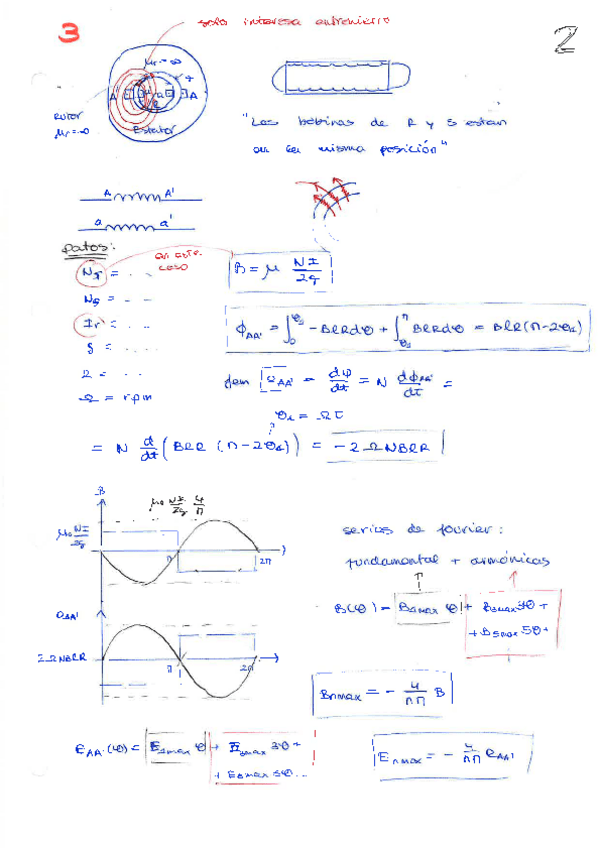 3
solo interesa entrehierro
2
μr = ∞
A
a
A
Rotor
μr = ∞
Estator
"Las bobinas de R y S estan
en la misma posición"
A A'
a a'
Datos:
en este caso
Nr = ...
B = μ NI/2g
Ns = ...
Ir = ...
φAA' = ∫₀^θs -BlRdθ + ∫θs^π BlRdθ = BlR(π-2θs)
g = ...
l = ...
Ω = rpm
fem eAA' = dφ/dt = N dφAA'/dt =
θs = Ωt
= N d/dt (BlR (π-2θs)) = -2ΩNBlR
B
μ0 NI/2g 4/π
μ0 NI/2g
π 2π
series de fourier:
fundamental + armónicas
B(θ) = B1max θ + B3max 3θ +
+ B5max 5θ +
eAA'
2ΩNBlR
π 2π
Bnmax = - 4/nπ B
EAA'(θ) = E1max θ + E3max 3θ +
+ E5max 5θ...
Enmax = - 4/nπ eAA'